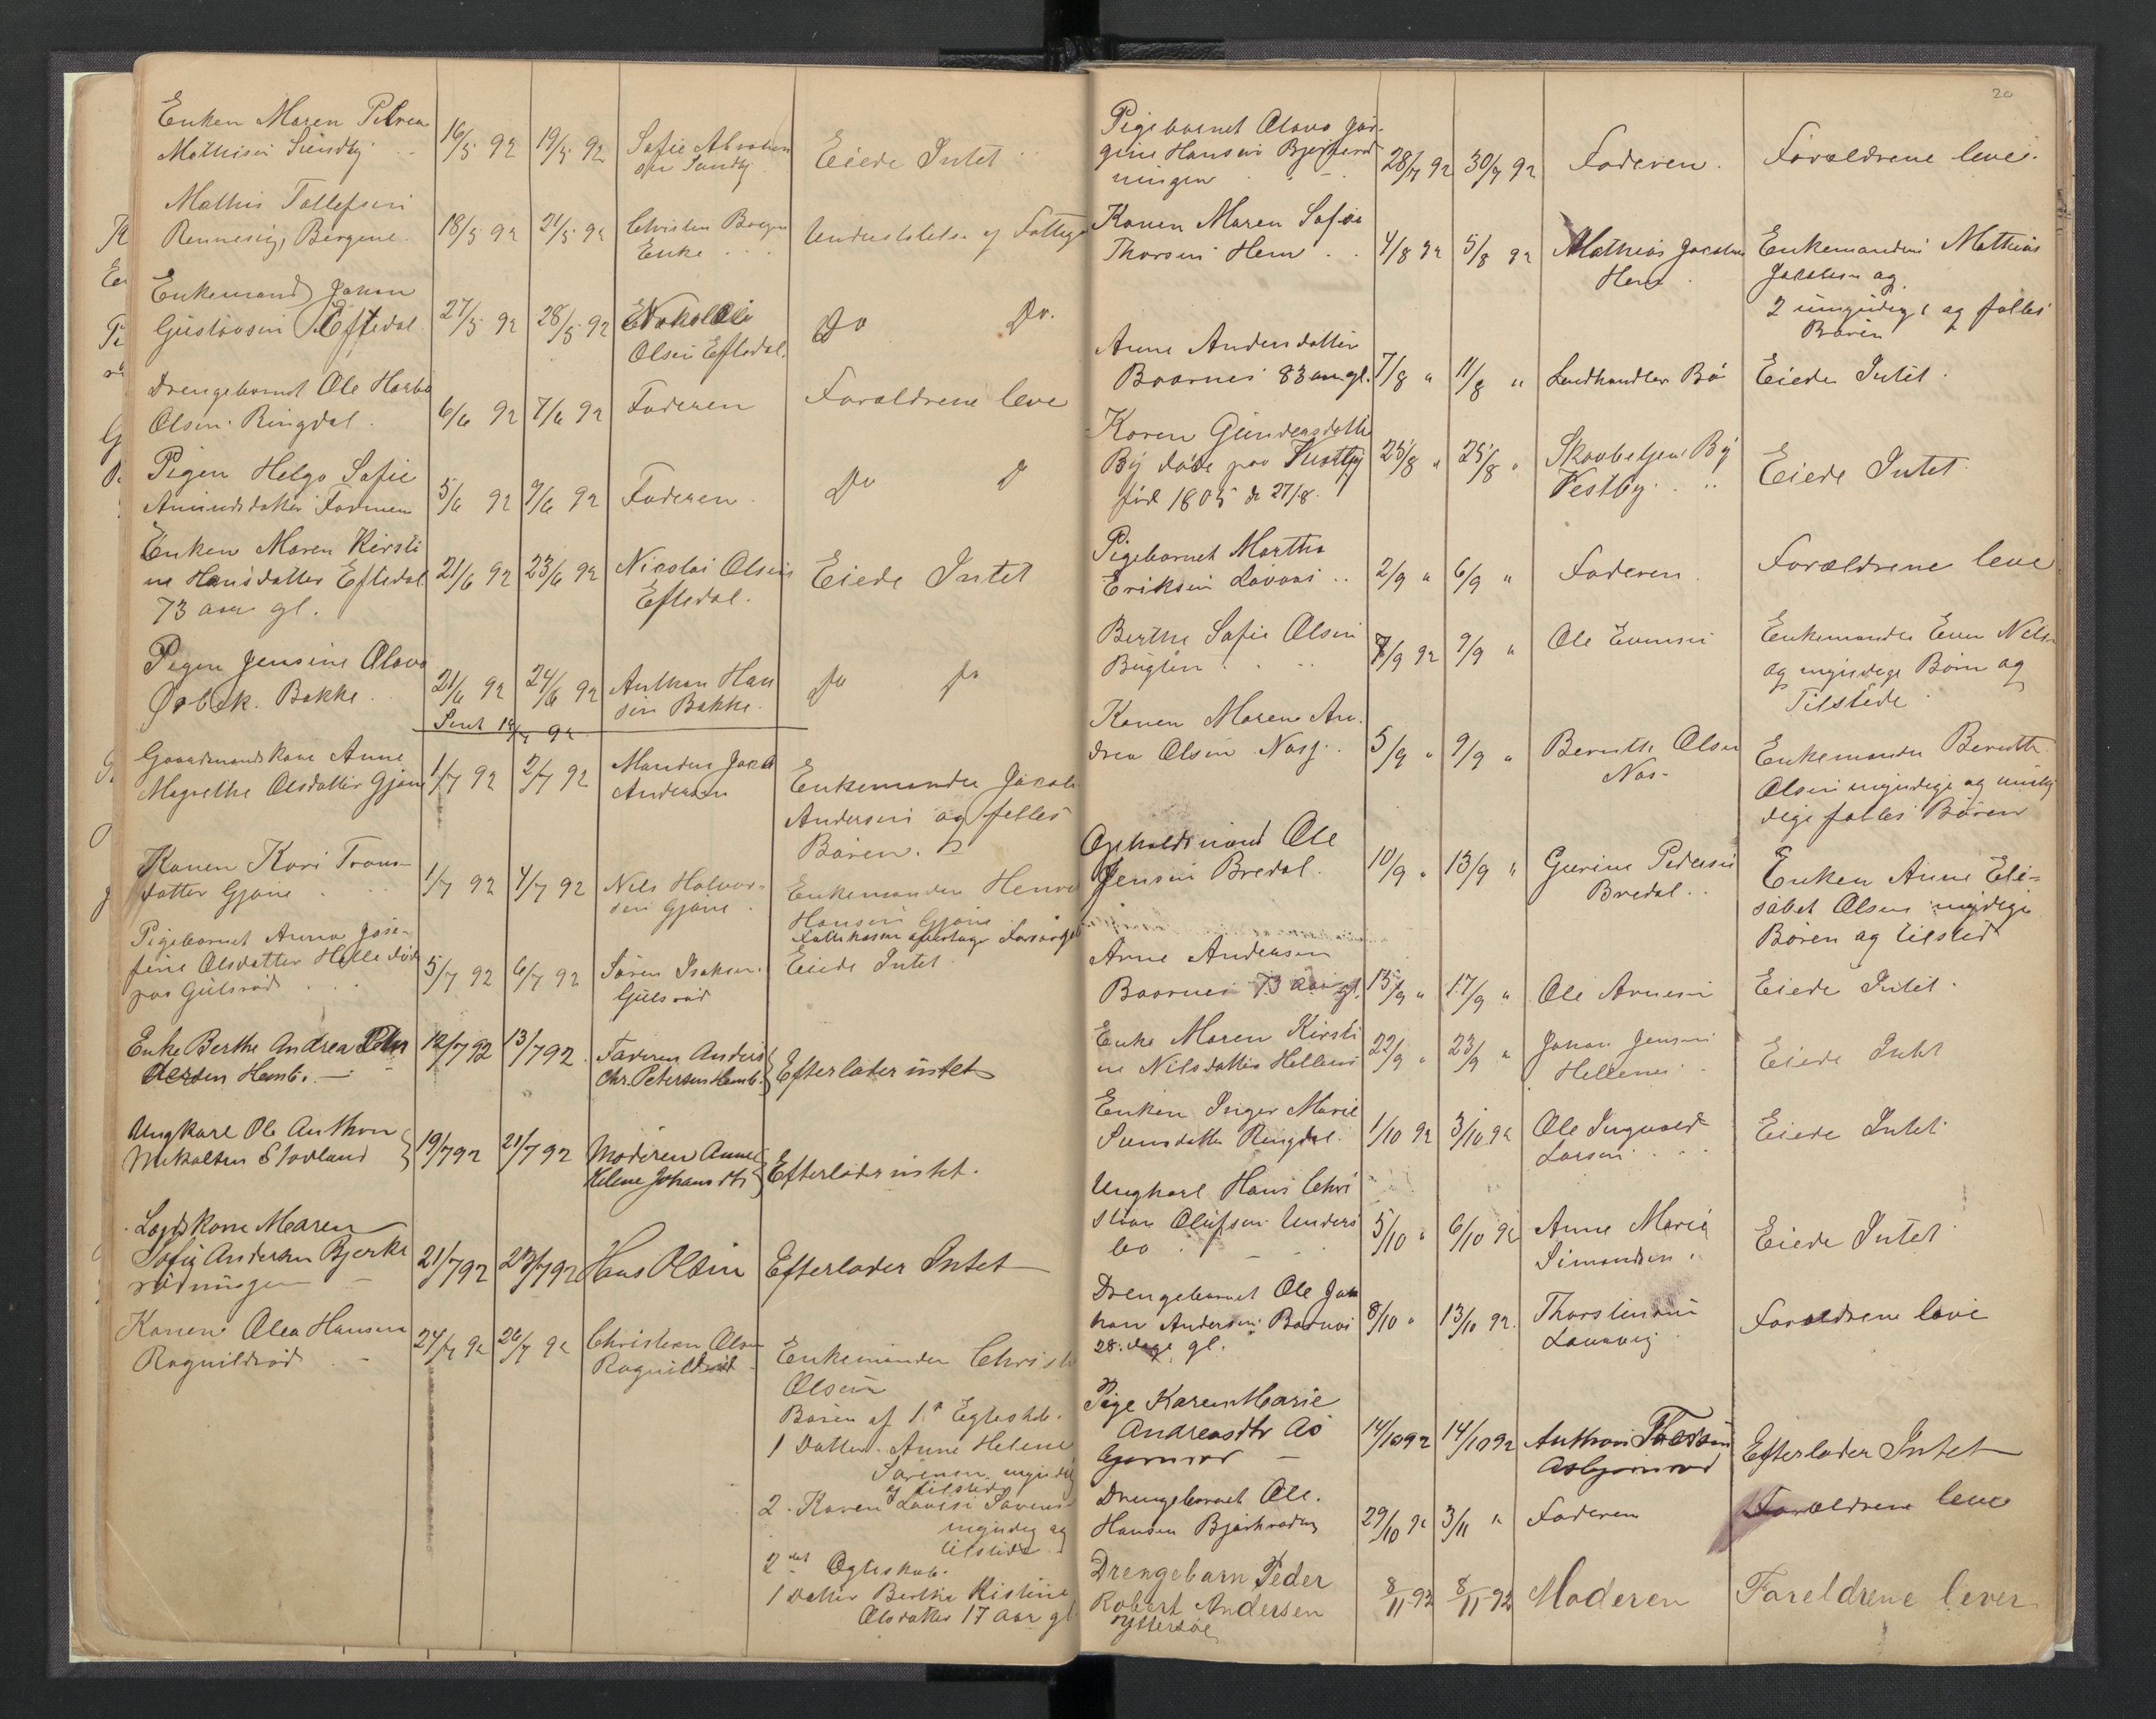 Enken Maren Petrea
Mathisen Sundby
16/5 92
19/5 92
Sofie Abraham
sen Sundby
Eiede Intet
Mathis Tollefsen
Rennesig, Bergene
18/5 92
21/5 92
Christen
Enke
Understøttelse af Fattig
Enkemand Johan
Gustavsen Eftedal
27/5 92
28/5 92
Olsen Eftedal.
Do Do.
Drengebarnet Ole
Olsen Ringdal
6/6 92
7/6 92
Faderen
Forældrene leve
Pigen Helga Sofie
Amundsdatter Farmen
5/6 92
7/6 92
Faderen
Do D
Enken Maren Kirsti
ne Hansdatter Eftedal
73 aar gl.
21/6 92
23/6 92
Nicolai Olsen
Eftedal.
Eiede Intet
Pigen Jensine Olava
Ørbek. Bakke
21/6 92
24/6 92
Anthon Han
sen Bakke
Do Do
Sent 19/7 92
Gaardmandskone Anne
Magrethe Olsdatter Gjøne
1/7 92
2/7 92
Manden Jacob
Andersen
Enkemanden Jacob
Andersen og felles
Børen.
Konen Kari Trons
datter Gjøne
1/7 92
4/7 92
Nils Halvor
sen Gjøne
Enkemanden
Hansen Gjøne
Pigebarnet Anna Jose-
fine Olsdatter Helle død
paa Gulsrød
5/7 92
6/7 92
Søren Isaksen
Gulsrød
Eiede Intet
Enke Berthe Andrea
Hemb.
12/7 92
13/7 92
Faderen Anders
Chr. Petersen Hemb.
Efterlader intet
Ungkarl Ole Anthon
Mikalsen Stovland
19/7 92
21/7 92
Moderen Anne
Helene Johansdtr
Efterlader intet.
Logskone Maren
Sofie Andersen Bjerke
rødningen
21/7 92
23/7 92
Hans Olsen
Efterlader Intet
Konen Olea Hansen
Ragnildrød
24/7 92
26/7 92
Christian Olsen
Ragnildrød
Enkemanden Christ
Olsen
Børen af 1ste Egteskab.
1 Datter. Anne Helene
Sørensen myndig
og tilstede
2. Karen Lovise Sørens
myndig og
tilstede
2det Egteskab.
1 Datter Berthe Kistine
Olsdatter 17 aar gl
20
Pigebarnet Olava Jør-
gine Hansen
ningen
28/7 92
30/7 92
Faderen.
Forældrene leve.
Konen Maren Sofie
Thorsen Hem
4/8 92
5/8 92
Mathias Jacobsen
Hem
Enkemanden Mathias
Jacobsen og
2 umyndige og felles
Børen
Anne Andersdatter
Baarnes 83 aar gl.
7/8 "
11/8 "
Landhandler Bø
Eiede Intet.
Karen Gundersdatter
By døde paa Vestby
født 1805 d 27/8.
23/8 "
25/8 "
By
Vestby
Eiede Intet.
Pigebarnet Martha
Eriksen
2/9 "
6/9 "
Faderen
Forældrene leve
Berthe Sofie Olsen
Buglen
7/9 92
9/9 "
Ole Evensen
Enkemanden Even Nilsen
og myndige Børn og
Tilstede
Konen Maren An
drea Olsen Nas
5/9 "
9/9 "
Bernth Olsen
Nas
Enkemanden Bernth
Olsen myndige og umyn
dige felles Børen
Opholdsmand Ole
Jensen Bredal.
10/9 "
13/9 "
Gurine Pedersen
Bredal
Enken Anne Eli-
sabet Olsen myndige
Børen og tilsted
Arne Andersen
Baarnes 73 aar gl.
13/9 "
17/9 "
Ole Arnesen
Eiede Intet.
Enke Maren Kirsti
ne Nilsdatter Hellenes
22/9 "
23/9 "
Johan Jensen
Hellenes
Eiede Intet
Enken Inger Marie
Ringdal.
1/10 92
3/10 92
Ole Ingvald
Larsen
Eiede Intet
Ungkarl Hans Chri
stian Olufsen Unders
bo
5/10 "
6/10 92
Anne Marie
Simondsen
Eiede Intet
Drengebarnet Ole Joh
han Andersen Baarnes
28. dage gl.
8/10 "
13/10 92.
Thorstensen
Forældrene leve
Pige Karen Marie
Andreasdtr As
bjørnrød
14/10 92
14/10 92
Anthon
Asbjørnrød
Efterlader Intet
Drengebarnet Ole.
Hansen
29/10 92
3/11 "
Faderen
Forældrene leve
Drengebarn Peder
Robert Andersen
Yttersøe
8/11-92
8/11-92
Moderen
Foreldrene lever